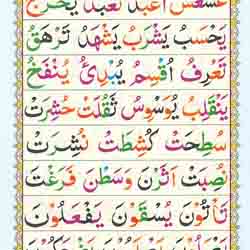 يَحْسَبُ يَشْرَبُ يَشْهَدُ تَرْهَقُ
تَعْرِفُ اُقْسِمُ يُبْدِئُ يُنْفَخُ
يَنْقَلِبُ يُوَسْوِسُ ثَقُلَتْ حُشِرَتْ
سُطِحَتْ كُشِطَتْ نُشِرَتْ
نُصِبَتْ اَثَرْنَ وَسَطْنَ فَرَغْتَ
تَأْتُوْنَ يُسْقَوْنَ يَفْعَلُوْنَ